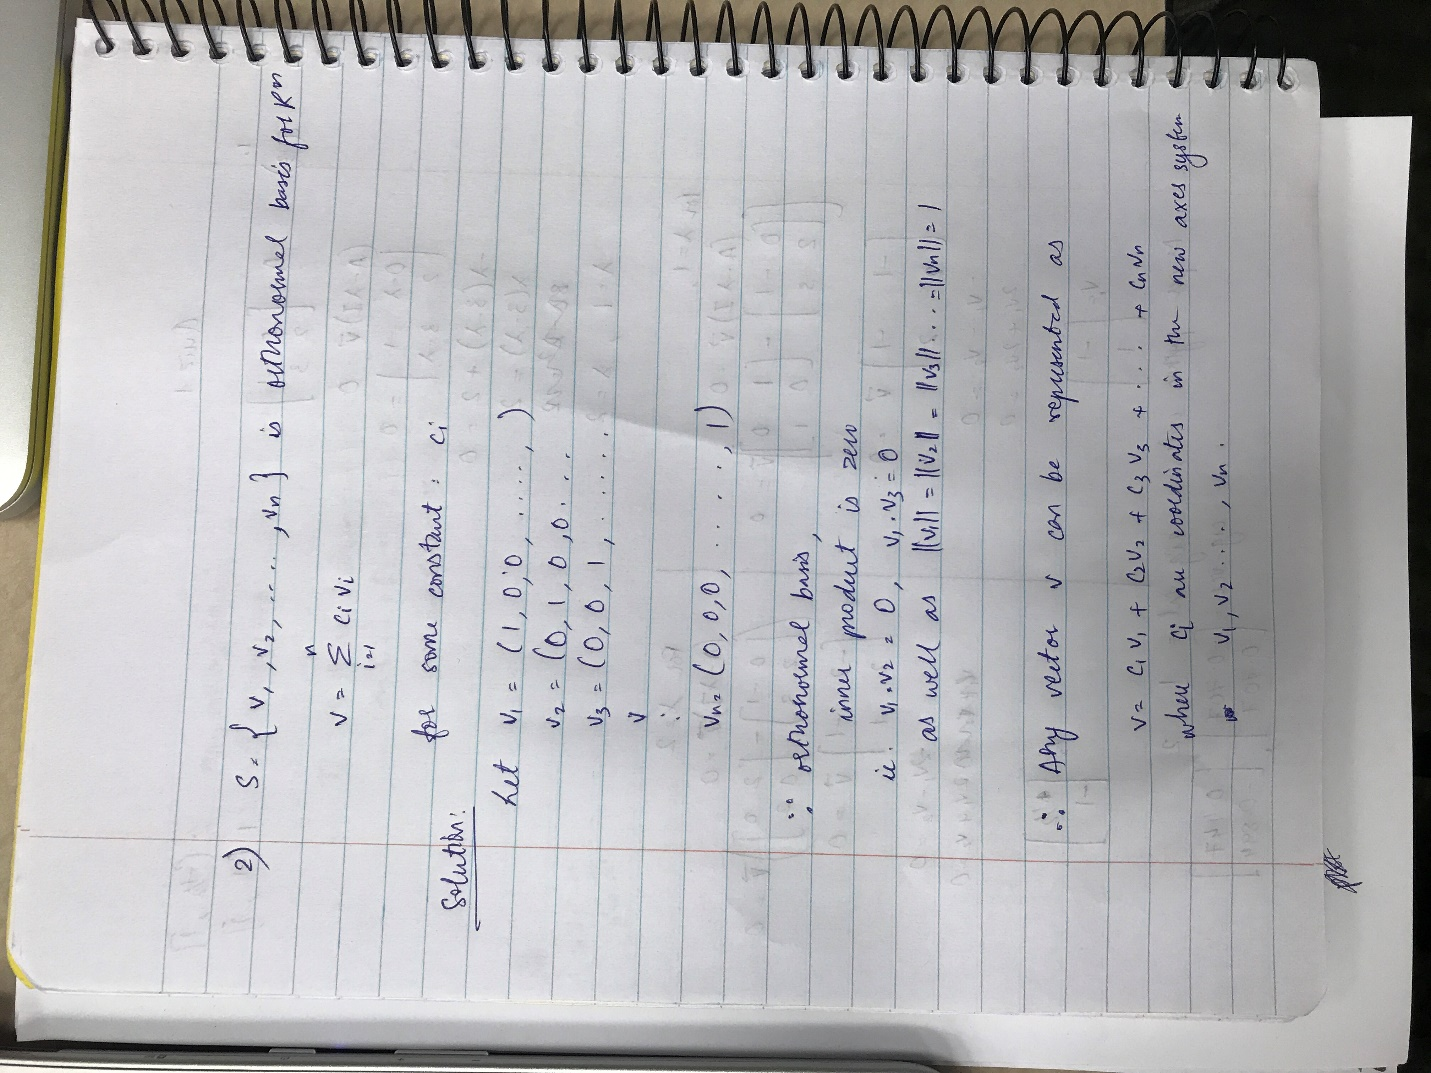 2) S = { v1, v2, ...., vn } is orthonormal basis for R^n
v = Σ_{i=1}^{n} ci vi
for some constant : ci
Solution:
Let v1 = (1, 0, 0, ....., )
v2 = (0, 1, 0, 0 ...
v3 = (0, 0, 1, .....
v
:
vn = (0, 0, 0, ....., 1)
∵ orthonormal basis,
inner product is zero
ie. v1.v2 = 0, v1.v3 = 0
as well as ||v1|| = ||v2|| = ||v3|| ... = ||vn|| = 1
∴ Any vector v can be represented as
v = c1 v1 + c2 v2 + c3 v3 + .... + cn vn
where ci are coordinates in the new axes system
v1, v2 ...., vn.